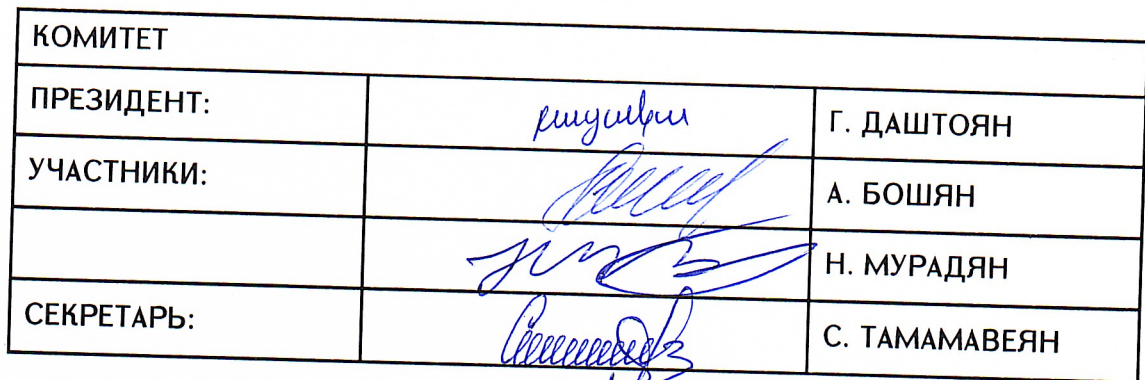 КОМИТЕТ
ПРЕЗИДЕНТ: Г. ДАШТОЯН
УЧАСТНИКИ: А. БОШЯН
Н. МУРАДЯН
СЕКРЕТАРЬ: С. ТАМАМАВЕЯН